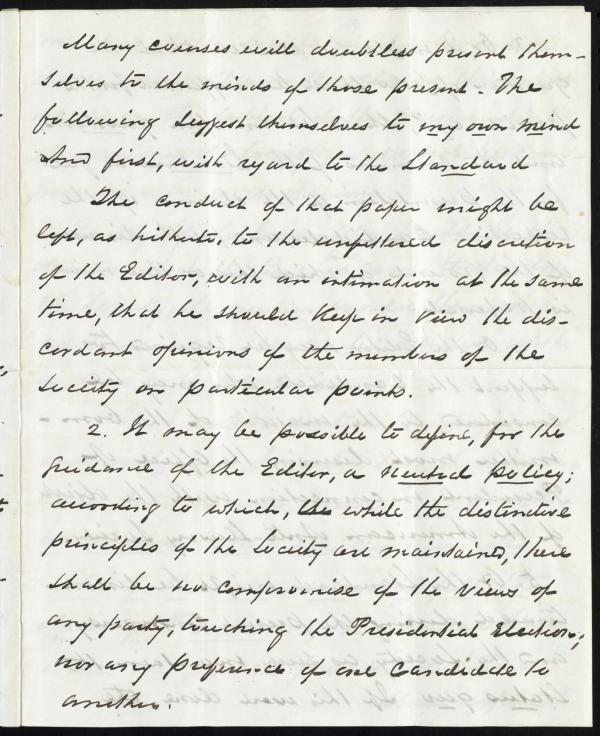 Many courses will doubtless present them-
selves to the minds of those present. The
following suggest themselves to my own mind
And first, with regard to the Standard
The conduct of that paper might be
left, as hitherto, to the unfettered discretion
of the Editor, with an intimation at the same
time, that he should keep in view the dis-
cordant opinions of the members of the
Society on particular points.
2. It may be possible to define, for the
guidance of the Editor, a neutral policy;
according to which, the while the distinctive
principles of the Society are maintained, there
shall be no compromise of the views of
any party, touching the Presidential Election;
nor any preference of one Candidate to
another.